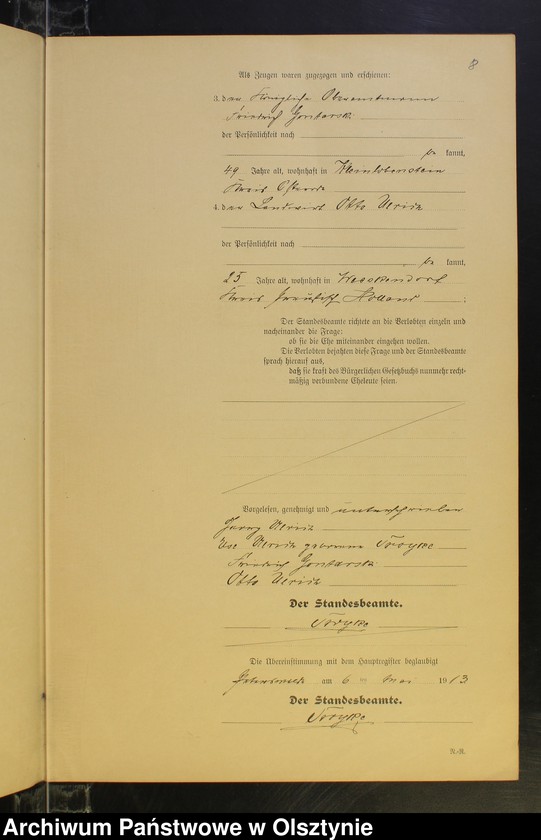 8
Als Zeugen waren zugezogen und erschienen:
3. der Königliche Oberamtmann
Friedrich Gontarski
der Persönlichkeit nach
kannt,
49 Jahre alt, wohnhaft in Kleinlobenstein
Kreis Osterode
4. der Landwirt Otto Ulrich
der Persönlichkeit nach
kannt,
25 Jahre alt, wohnhaft in
Kreis Preußisch Holland ;
Der Standesbeamte richtete an die Verlobten einzeln und
nacheinander die Frage:
ob sie die Ehe miteinander eingehen wollen.
Die Verlobten bejahten diese Frage und der Standesbeamte
sprach hierauf aus,
daß sie kraft des Bürgerlichen Gesetzbuchs nunmehr recht-
mäßig verbundene Eheleute seien.
Vorgelesen, genehmigt und unterschrieben
Ulrich
Ulrich geborene
Friedrich Gontarski
Otto Ulrich
Der Standesbeamte.
Die Übereinstimmung mit dem Hauptregister beglaubigt
am 6 ten Mai 1913
Der Standesbeamte.
N.R.
Archiwum Państwowe w Olsztynie